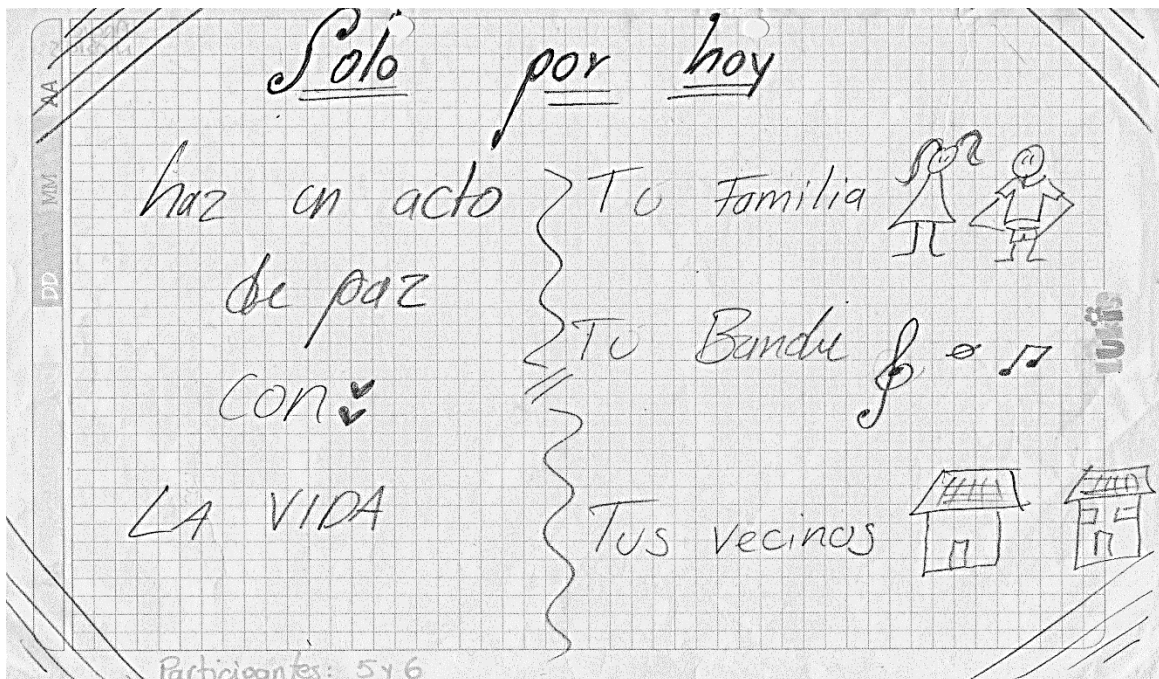 Solo por hoy
haz un acto
de paz
con:
LA VIDA
Tu Familia
Tu Banda
Tus vecinos
Participantes: 5 y 6
AA
MM
DD